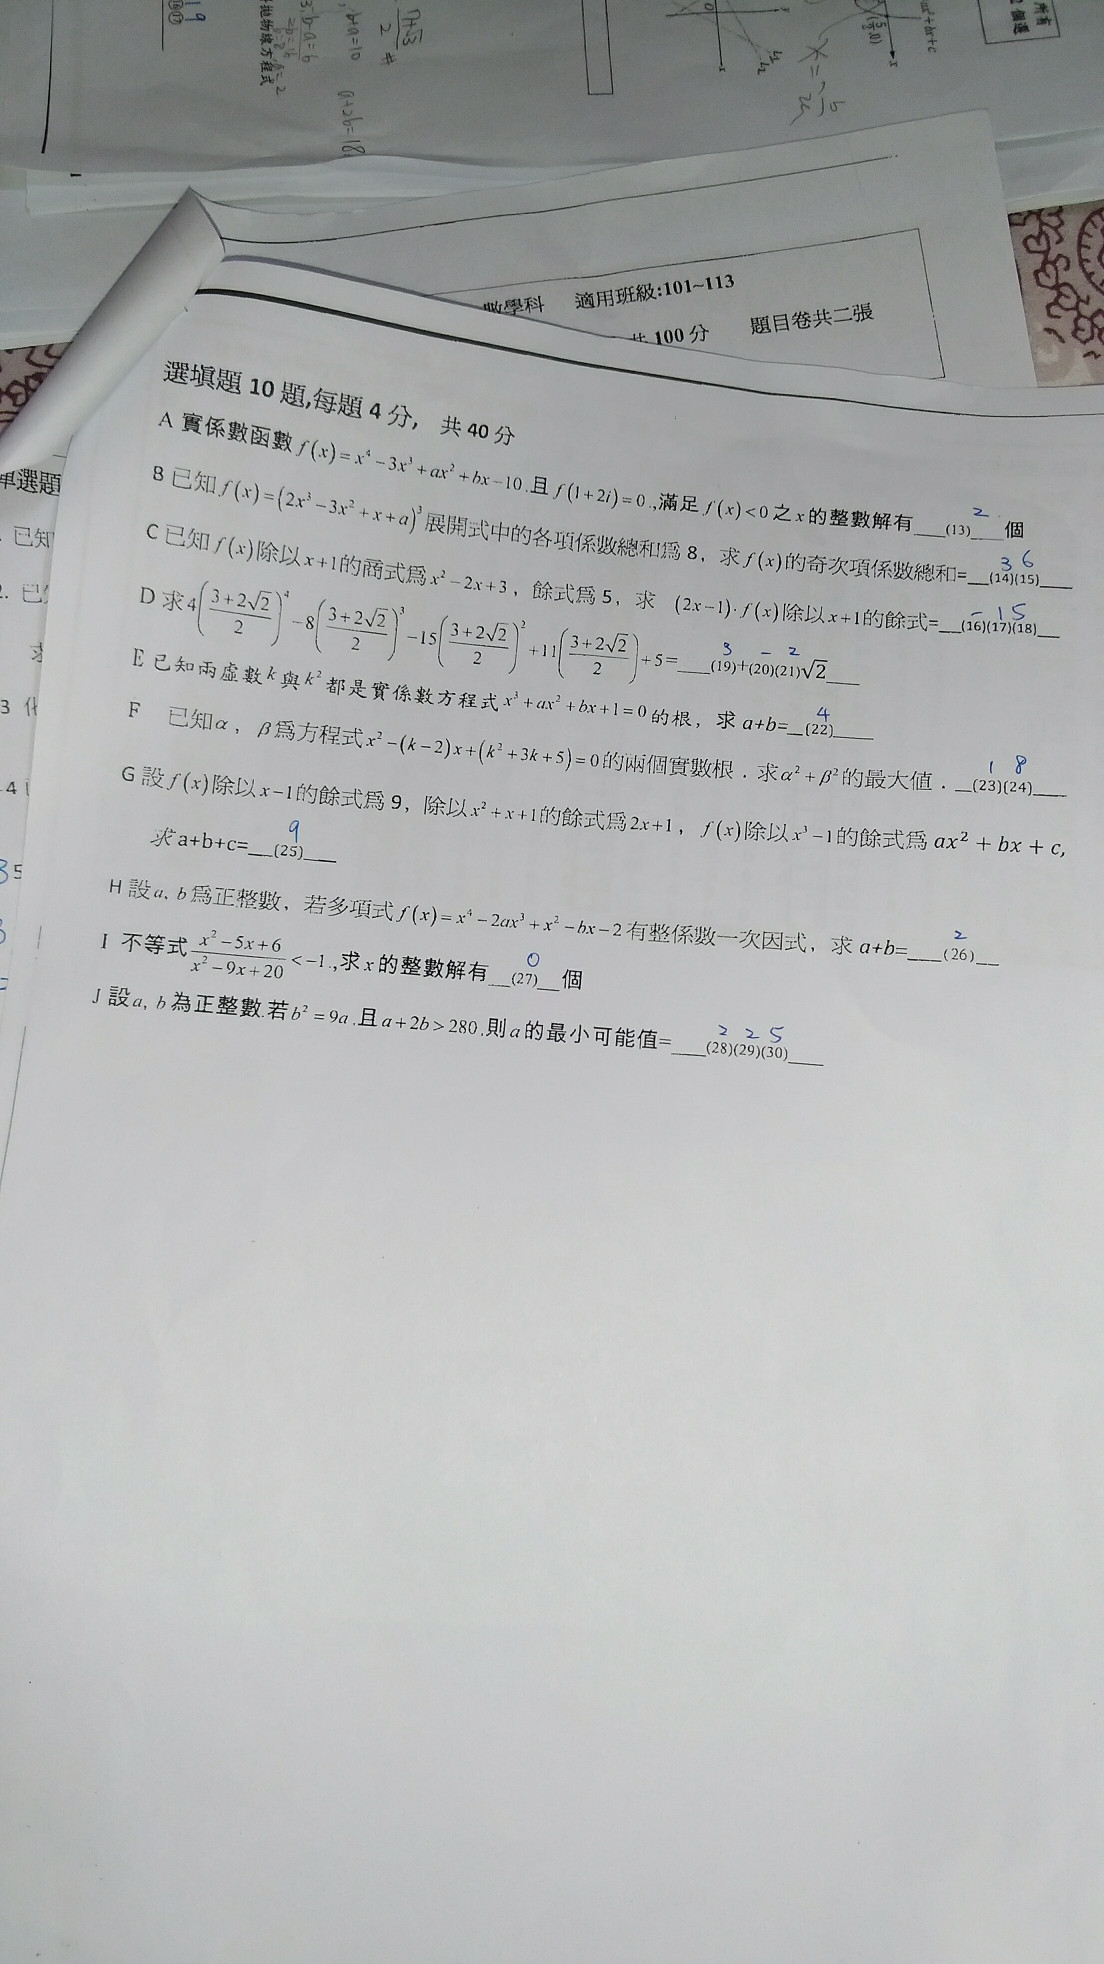 所有
2 個選
19
⑯⑰
拋物線方程式
b+a=10
3.b-a=6
2b=16
b=8,a=2
a+2b=18
數學科 適用班級:101~113
共 100 分 題目卷共二張
單選題
已知
2. 已
求
3 化
4
選填題 10 題,每題 4 分, 共 40 分
A 實係數函數 f(x)=x⁴-3x³+ax²+bx-10.且 f(1+2i)=0.,滿足 f(x)<0 之 x 的整數解有__(13)__個 2
B 已知 f(x)=(2x³-3x²+x+a)³展開式中的各項係數總和爲 8, 求 f(x)的奇次項係數總和=__(14)(15)__ 36
C 已知 f(x)除以 x+1的商式爲 x²-2x+3, 餘式爲 5, 求 (2x-1)·f(x)除以 x+1的餘式=__(16)(17)(18)__ -15
D 求 4((3+2√2)/2)⁴-8((3+2√2)/2)³-15((3+2√2)/2)²+11((3+2√2)/2)+5=__(19)+(20)(21)√2__ 3 - 2
E 已知兩虛數 k 與 k² 都是實係數方程式 x³+ax²+bx+1=0 的根, 求 a+b=__(22)__ 4
F 已知 α, β 爲方程式 x²-(k-2)x+(k²+3k+5)=0 的兩個實數根. 求 α²+β² 的最大值. __(23)(24)__ 18
G 設 f(x)除以 x-1的餘式爲 9, 除以 x²+x+1的餘式爲 2x+1, f(x)除以 x³-1的餘式爲 ax² + bx + c,
求 a+b+c=__(25)__ 9
H 設 a, b 爲正整數, 若多項式 f(x)=x⁴-2ax³+x²-bx-2 有整係數一次因式, 求 a+b=__(26)__ 2
I 不等式 (x²-5x+6)/(x²-9x+20)<-1.,求 x 的整數解有__(27)__個 0
J 設 a, b 為正整數.若 b²=9a.且 a+2b>280.則 a 的最小可能值=__(28)(29)(30)__ 225